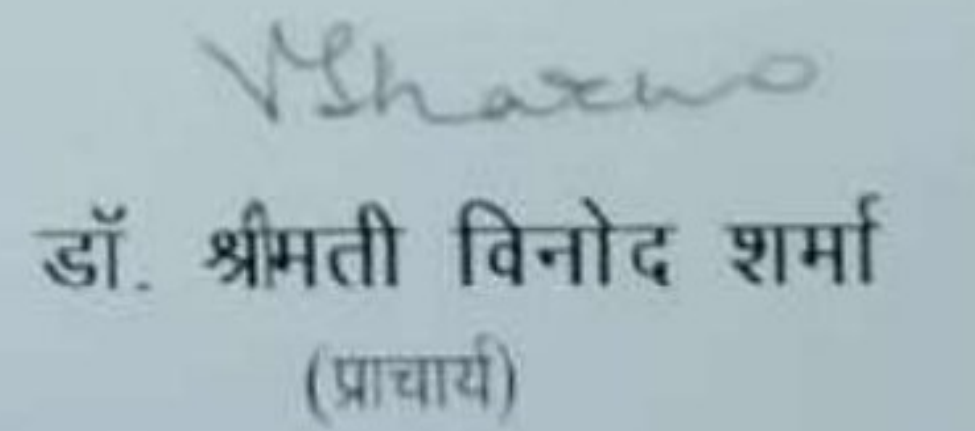 VSharma
डॉ. श्रीमती विनोद शर्मा
(प्राचार्य)